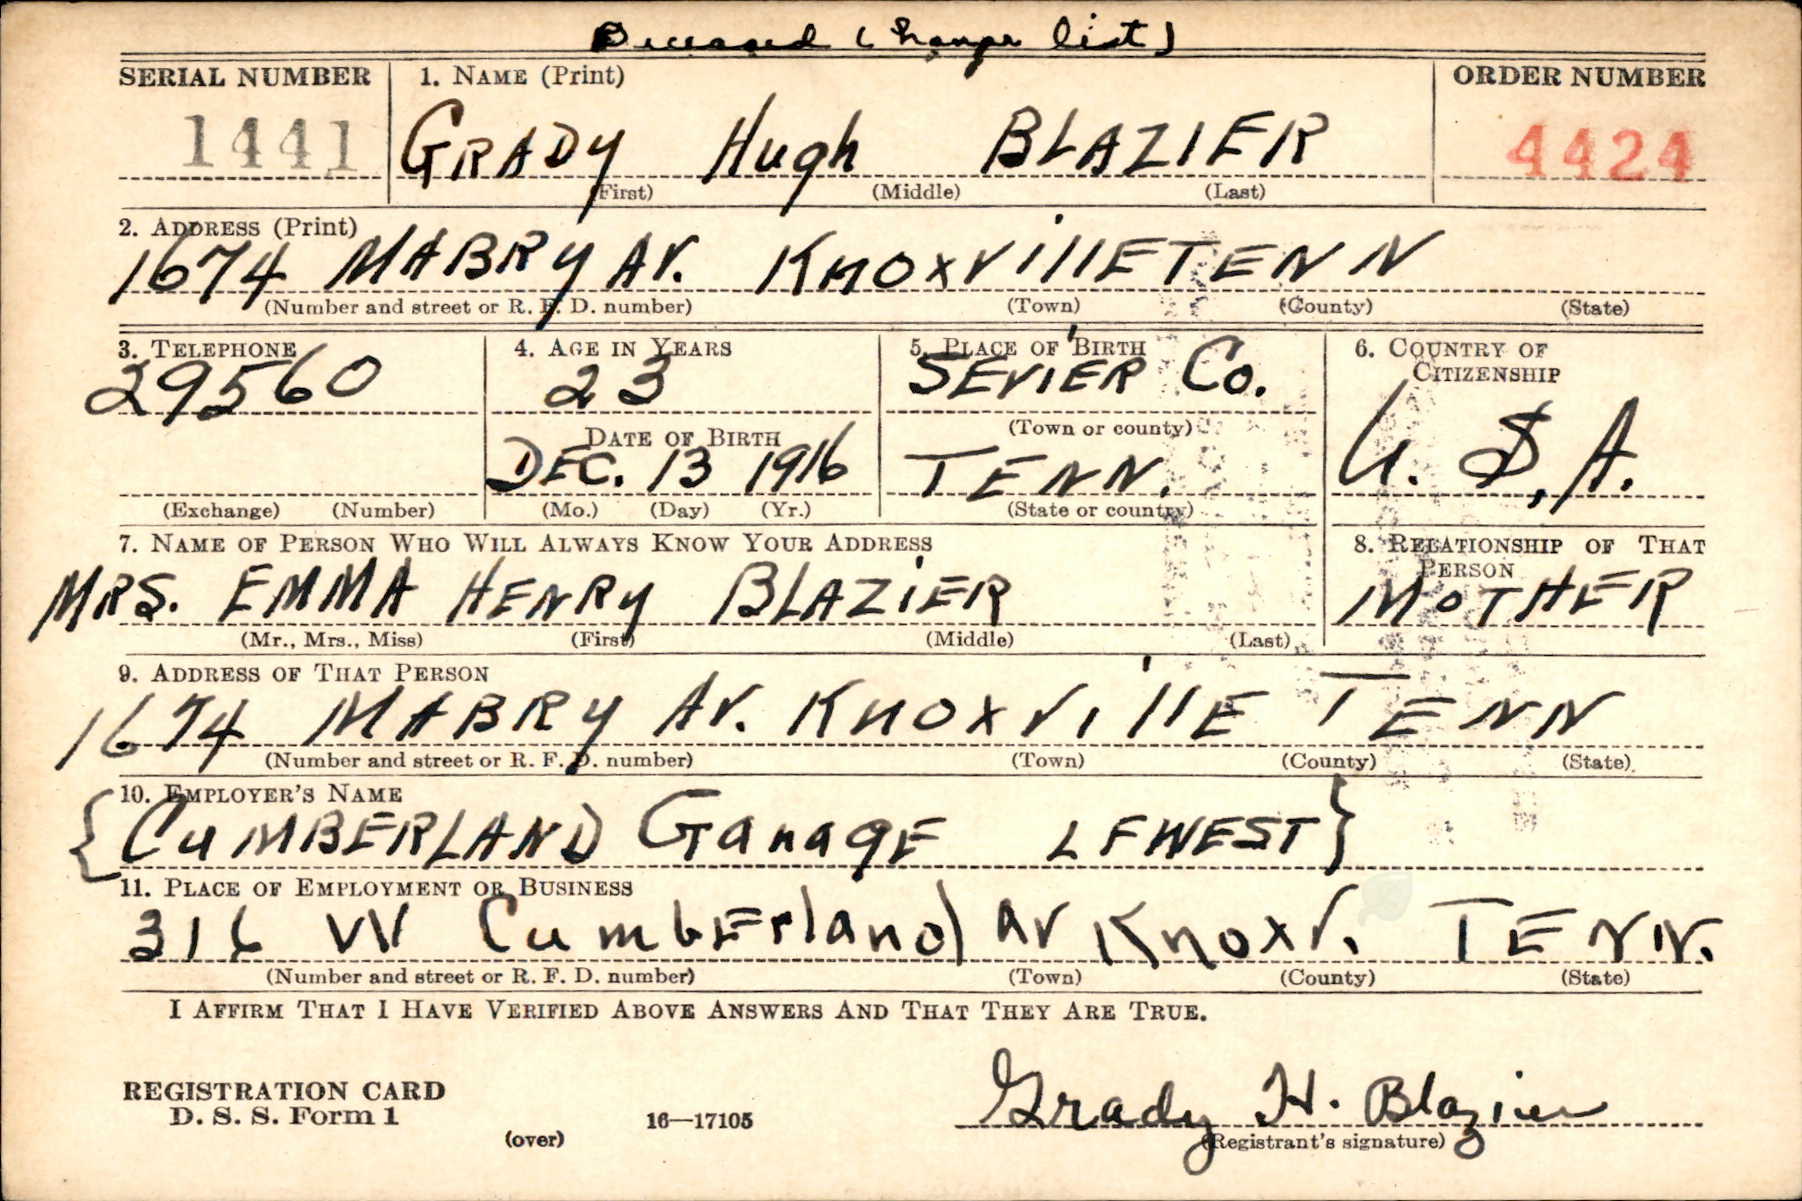 Deceased (Honor list)
SERIAL NUMBER 1. NAME (Print) ORDER NUMBER
1441 GRADY Hugh BLAZIER 4424
(First) (Middle) (Last)
2. ADDRESS (Print)
1674 MABRY AV. KNOXVillE TENN
(Number and street or R. F. D. number) (Town) (County) (State)
3. TELEPHONE 4. AGE IN YEARS 5. PLACE OF BIRTH 6. COUNTRY OF CITIZENSHIP
29560 23 SEVIER Co.
(Town or county)
DATE OF BIRTH
DEC. 13 1916 TENN. U. S. A.
(Exchange) (Number) (Mo.) (Day) (Yr.) (State or country)
7. NAME OF PERSON WHO WILL ALWAYS KNOW YOUR ADDRESS 8. RELATIONSHIP OF THAT PERSON
MRS. EMMA HENRY BLAZiER MOTHER
(Mr., Mrs., Miss) (First) (Middle) (Last)
9. ADDRESS OF THAT PERSON
1674 MABRY AV. KNOXVillE TENN
(Number and street or R. F. D. number) (Town) (County) (State)
10. EMPLOYER'S NAME
{CuMBERLAND GaragE L F WEST}
11. PLACE OF EMPLOYMENT OR BUSINESS
316 W Cumberland av Knoxv. TENN.
(Number and street or R. F. D. number) (Town) (County) (State)
I AFFIRM THAT I HAVE VERIFIED ABOVE ANSWERS AND THAT THEY ARE TRUE.
REGISTRATION CARD
D. S. S. Form 1
(over) 16—17105
Grady H. Blazier
(Registrant's signature)